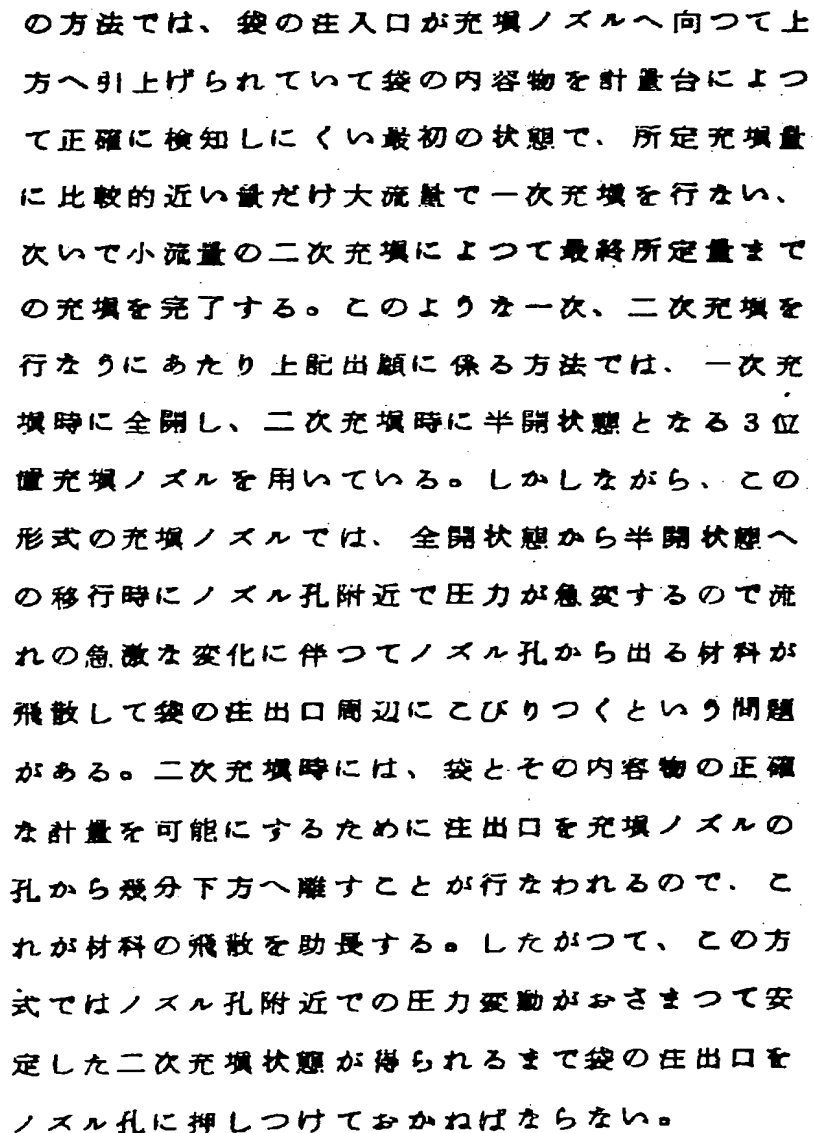 の方法では、袋の注入口が充塡ノズルへ向つて上
方へ引上げられていて袋の内容物を計量台によつ
て正確に検知しにくい最初の状態で、所定充塡量
に比較的近い量だけ大流量で一次充塡を行ない、
次いで小流量の二次充塡によつて最終所定量まで
の充塡を完了する。このような一次、二次充塡を
行なうにあたり上記出願に係る方法では、一次充
塡時に全開し、二次充塡時に半開状態となる3位
置充塡ノズルを用いている。しかしながら、この
形式の充塡ノズルでは、全開状態から半開状態へ
の移行時にノズル孔附近で圧力が急変するので流
れの急激な変化に伴つてノズル孔から出る材料が
飛散して袋の注出口周辺にこびりつくという問題
がある。二次充塡時には、袋とその内容物の正確
な計量を可能にするために注出口を充塡ノズルの
孔から幾分下方へ離すことが行なわれるので、こ
れが材料の飛散を助長する。したがつて、この方
式ではノズル孔附近での圧力変動がおさまつて安
定した二次充塡状態が得られるまで袋の注出口を
ノズル孔に押しつけておかねばならない。